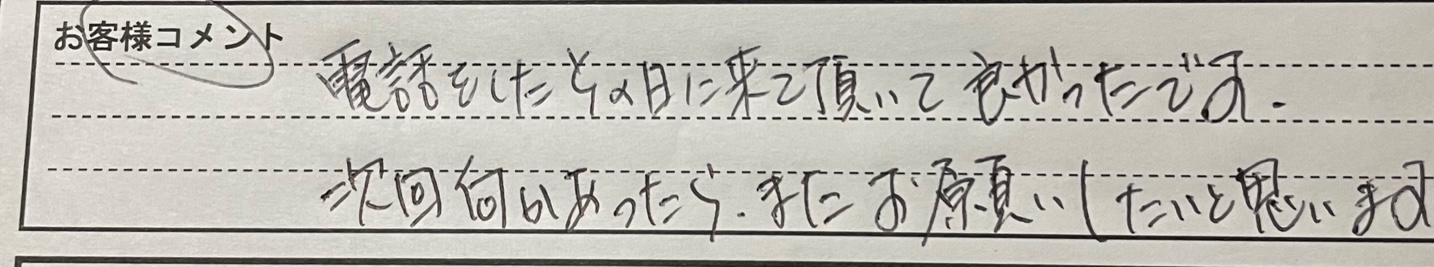 お客様コメント
電話をしたその日に来て頂いて良かったです.
次回何かあったら、またお願いしたいと思います